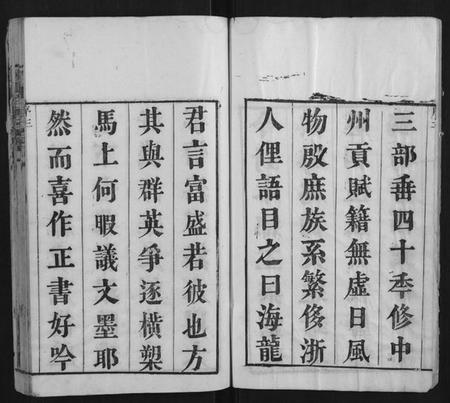 三部垂四十秊修中
州貢賦籍無虛日風
物殷庶族系繁侈浙
人俚語目之曰海龍
君言富盛若彼也方
其與群英爭逐橫槊
馬上何暇議文墨耶
然而喜作正書好吟